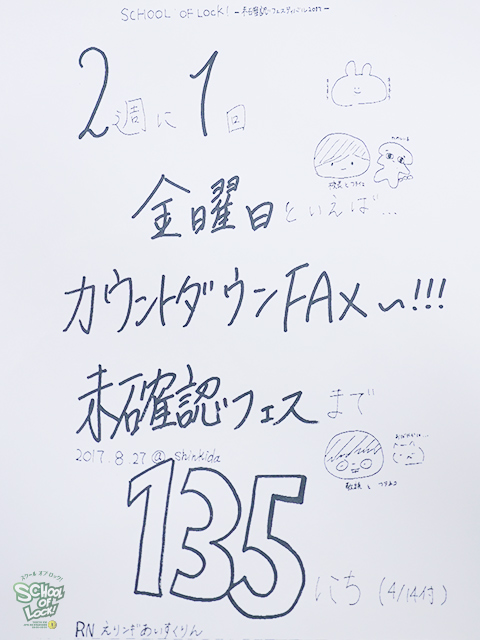 SCHOOL OF LOCK! -未確認フェスティバル2017-
2週に1回
金曜日といえば...
カウントダウンFAX〜!!!
未確認フェスまで
2017.8.27@ShinKiba
135にち(4/14付)
RN えリンギあいすくりん
スクール オブ・ロック!
SCHOOL
OF
LOCK!